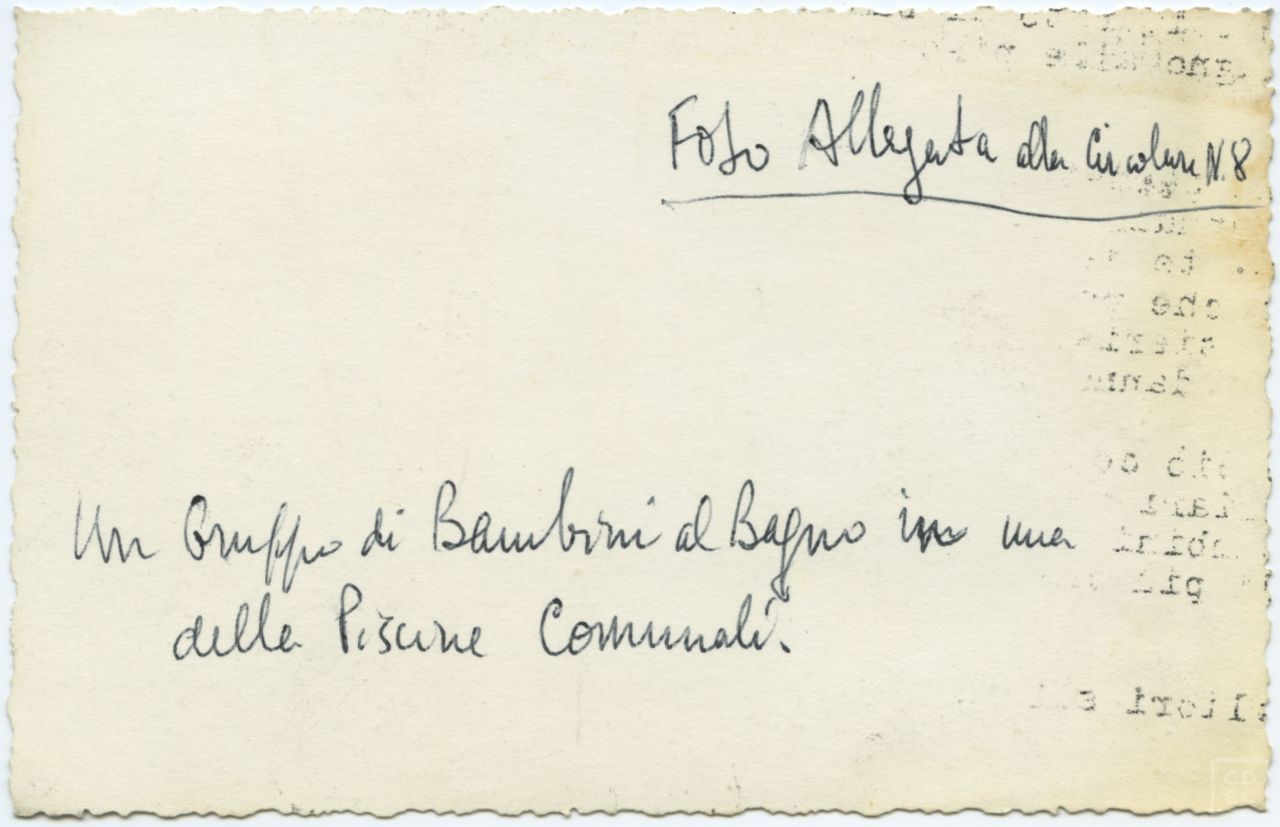 Foto Allegata alla Circolare N. 8
Un Gruppo di Bambini al Bagno in una
delle Piscine Comunali.